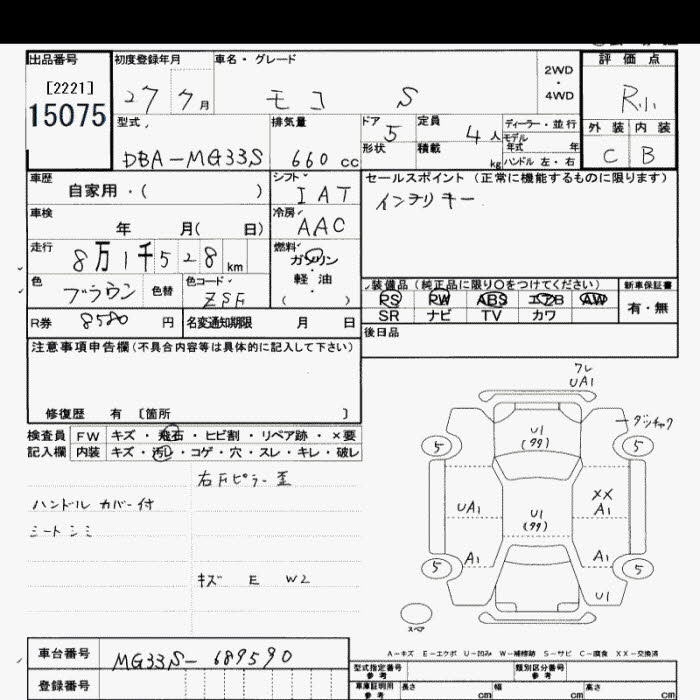 出品番号 初度登録年月 車名・グレード 2WD・4WD 評価点
[2221]
15075
27 7月 モコ S R小
型式 排気量 ドア 5 定員 4人 ディーラー・並行 外装 内装
モデル年式 年
DBA-MG33S 660cc 形状 積載 kg ハンドル 左・右 C B
車歴 シフト セールスポイント (正常に機能するものに限ります)
自家用・( ) IAT インテリキー
車検 冷房
年 月( 日) AAC
走行 燃料
8万1千528km ガソリン
色 色替 色コード 軽油
ブラウン ZSF ( )
装備品 (純正品に限り○をつけてください) 新車保証書
PS PW ABS エアB AW 有・無
SR ナビ TV カワ
R券 8580円 名変通知期限 月 日 後日品
注意事項申告欄(不具合内容等は具体的に記入して下さい)
修復歴 有 〔箇所 〕
検査員 FW キズ・飛石・ヒビ割・リペア跡・×要
記入欄 内装 キズ・汚レ・コゲ・穴・スレ・キレ・破レ
右Fピラー歪
ハンドルカバー付
シートシミ
キズ E W2
フレ
UA1
U1
(99)
5 5
UA1 U1 XX
(99) A1
A1 A1
5 5
U1
スペア
A-キズ E-エクボ U-凹み W-補修跡 S-サビ C-腐食 XX-交換済
車台番号 MG33S-689590
登録番号
型式指定番号 類別区分番号
参考 参考
車庫証明用 長さ 幅 高さ
参考 cm cm cm